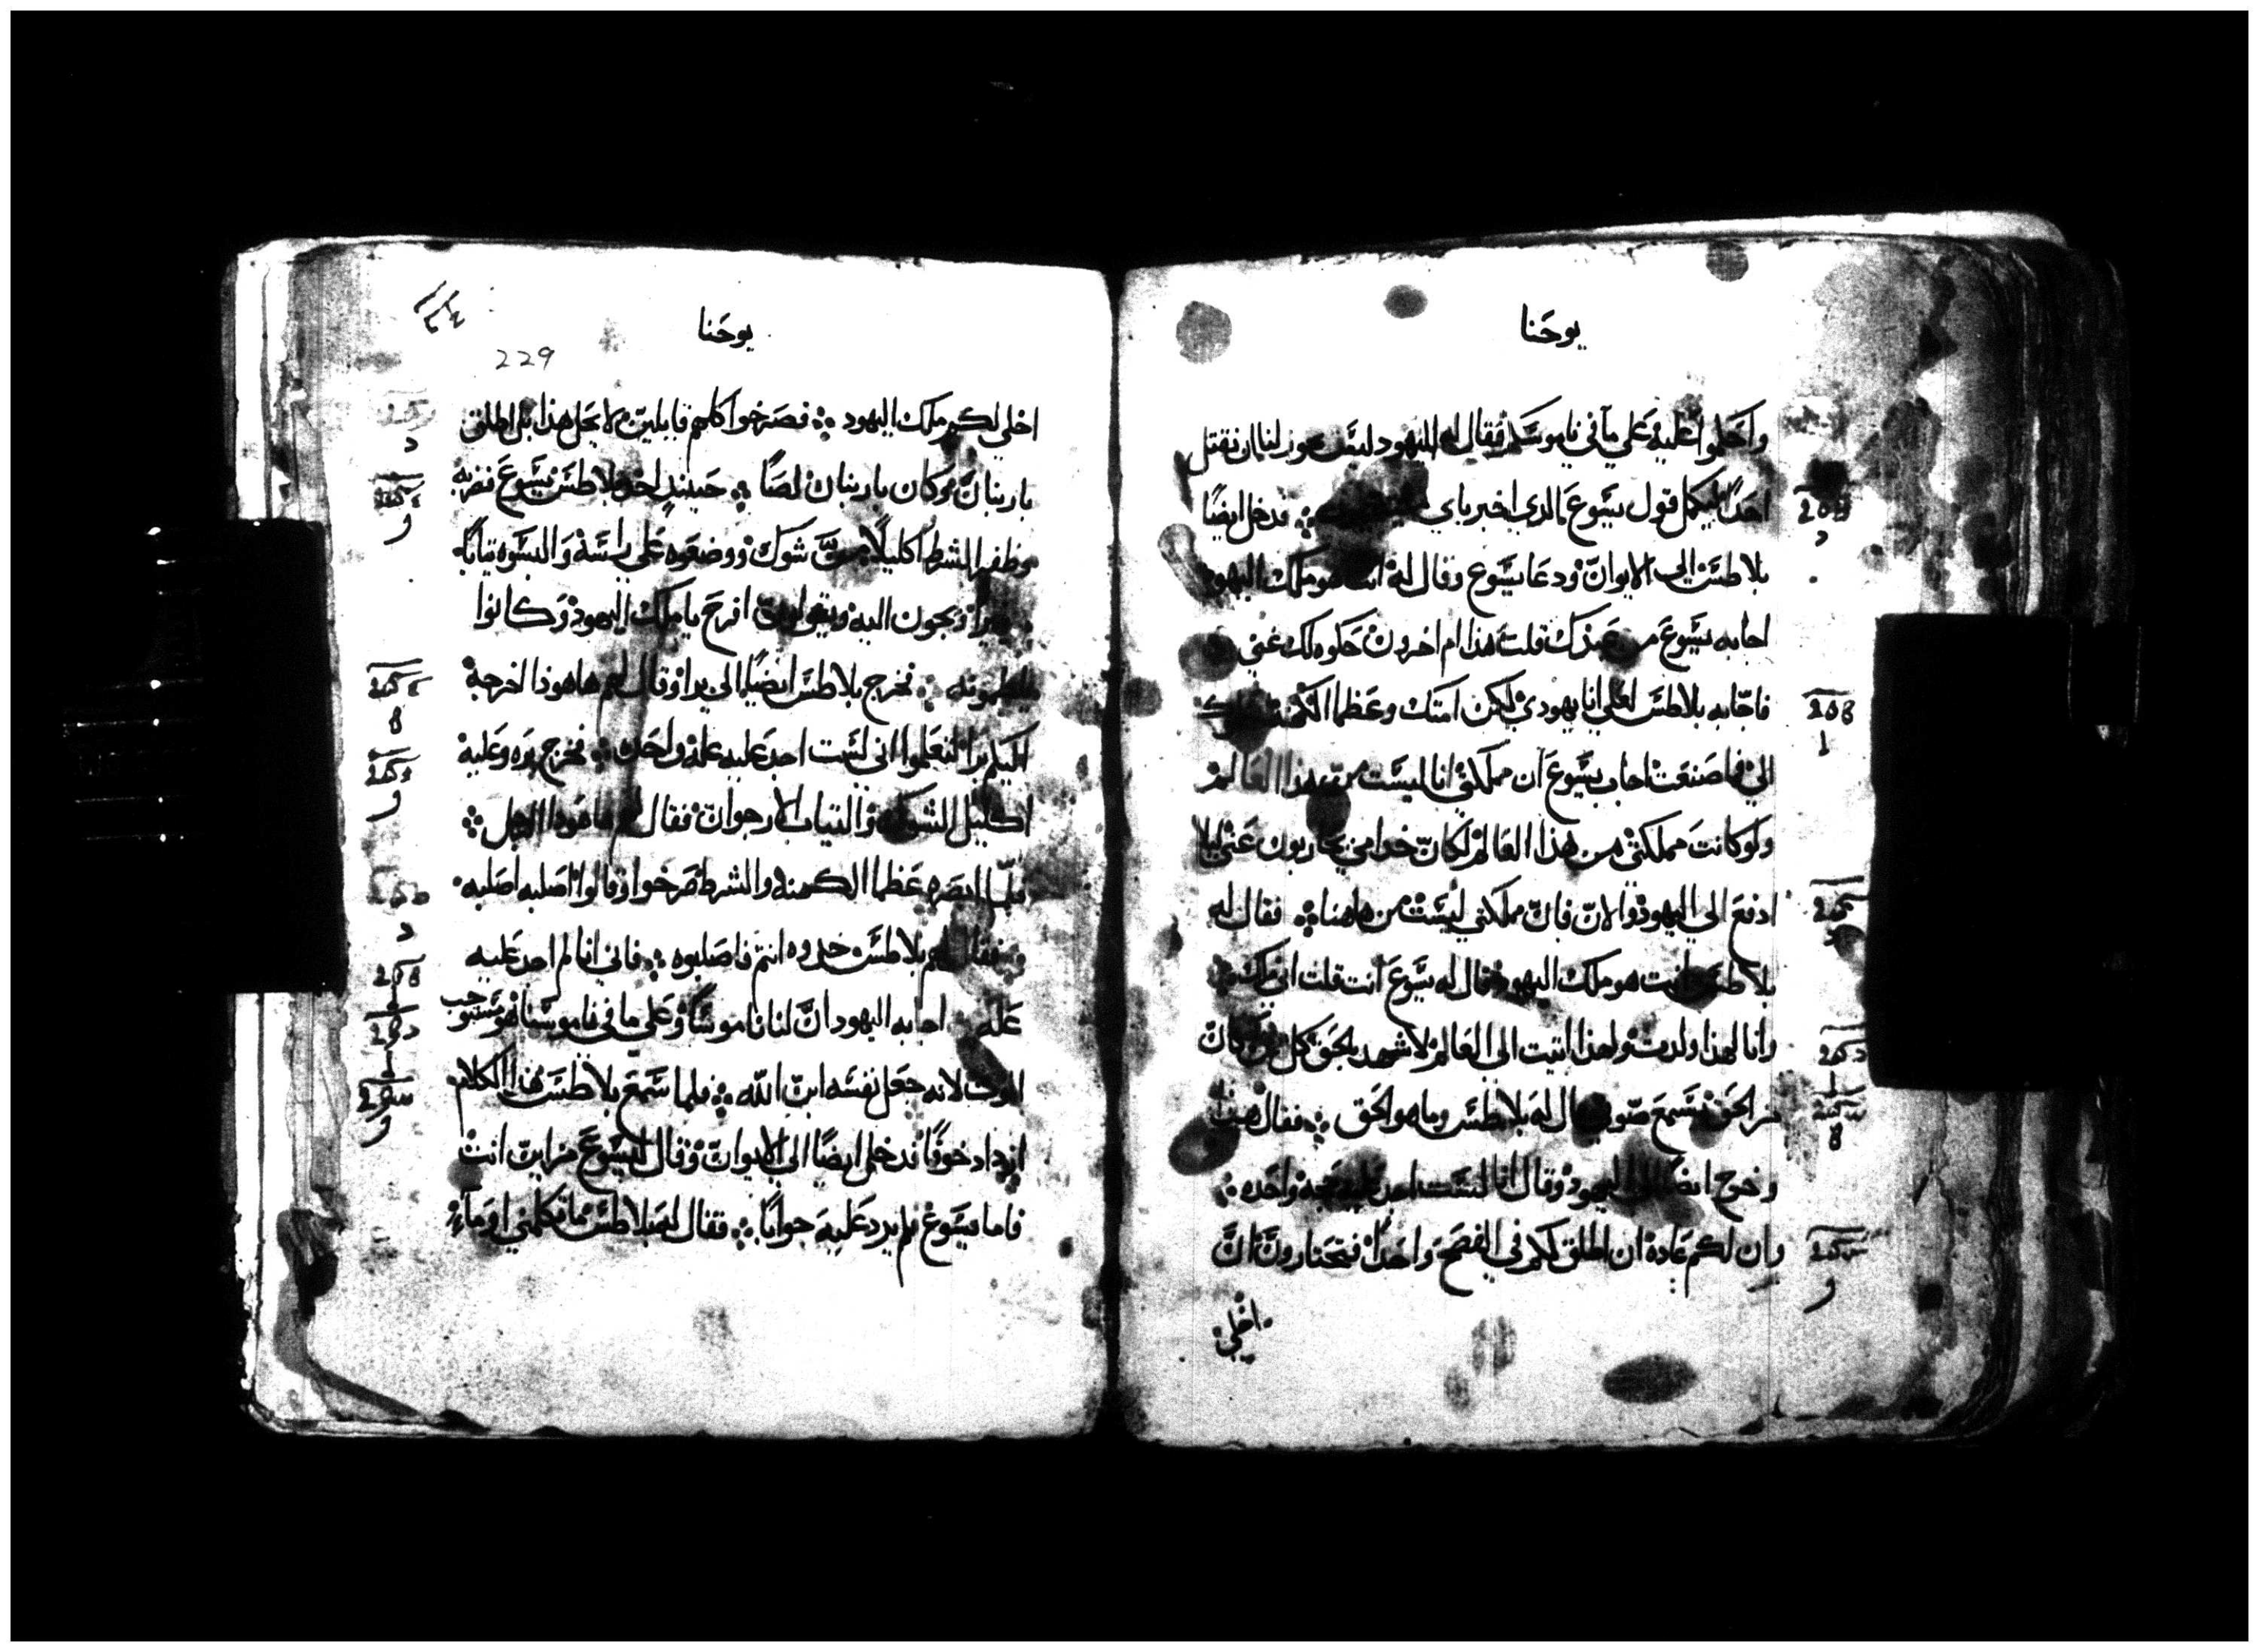 يوحنا
واحكموا عليه على ما في ناموسكم فقال له اليهود ليس يجوز لنا ان نقتل
احدًا ليكمل قول يسوع الذي اخبر باي ∴ فدخل ايضًا
بلاطس الى الايوان ودعا يسوع وقال له انت هو ملك اليهود
اجابه يسوع من عندك قلت هذا ام اخرون حكوه لك عني
فاجابه بلاطس لعلي انا يهودي لكن امتك وعظما الكهنة
الي فما صنعت اجاب يسوع ان مملكتي انا ليست من هذا العالم
ولو كانت مملكتي من هذا العالم لكان خدامي يحاربون عني ليلا
ادفع الي اليهود والان فان مملكتي ليست من هاهنا ∴ فقال له
بلاطس انت هو ملك اليهود قال له يسوع انت قلت اني ملك
وانا لهذا ولدت ولهذا اتيت الى العالم لاشهد بالحق كل من كان
من الحق يسمع صوتي قال له بلاطس وما هو الحق ∴ فقال هذا
وخرج ايضًا الى اليهود وقال انا لست اجد عليه واحده ∴
وان لكم عادة ان اطلق لكم في الفصح واحدًا فتختارون ان
اخلي
يوحنا
229
اخلي لكم ملك اليهود ∴ فصرخوا كلهم قايلين لا تخل هذا بل اطلق
باربنان وكان باربنان لصًا ∴ حينيذٍ اخذ بلاطس يسوع فضربه
وظفر الشرط اكليلًا من شوك ووضعوه على راسه والبسوه ثيابًا
ويجون اليه ويقولون افرح يا ملك اليهود وكانوا
يلطمونه ∴ فخرج بلاطس ايضًا الى برا وقال لهم هاهوذا اخرجه
اليكم برا لتعلموا اني لست اجد عليه علة واحدة ∴ فخرج يسوع وعليه
اكليل الشوك والثياب الارجوان فقال لهم ها هوذا الرجل ∴
فلما ابصره عظما الكهنه والشرط صرخوا وقالوا اصلبه اصلبه
فقال لهم بلاطس خدوه انتم فاصلبوه ∴ فاني انا لم اجد عليه
علة ∴ اجابه اليهود انّ لنا ناموسًا وعلى ما في ناموسنا هو مستوجب
الموت لانه جعل نفسه ابن الله ∴ فلما سمع بلاطس هذا الكلام
ازداد خوفًا فدخل ايضًا الى الايوان وقال ليسوع من اين انت
فاما يسوع فلم يرد عليه جوابًا ∴ فقال له بلاطس ما تكلمني او ما